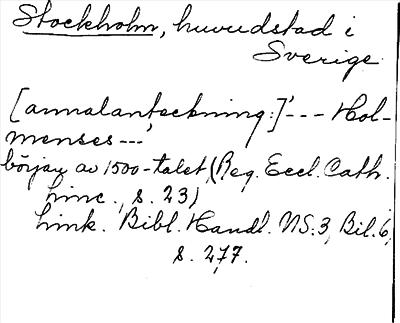 Stockholm, huvudstad i
Sverige
[annalanteckning:]'--- Hol-
menses ---'
början av 1500-talet, (Reg. Eccl. Cath.
Linc., s. 23)
Link. Bibl. Handl. NS:3, Bil. 6,
s. 277.